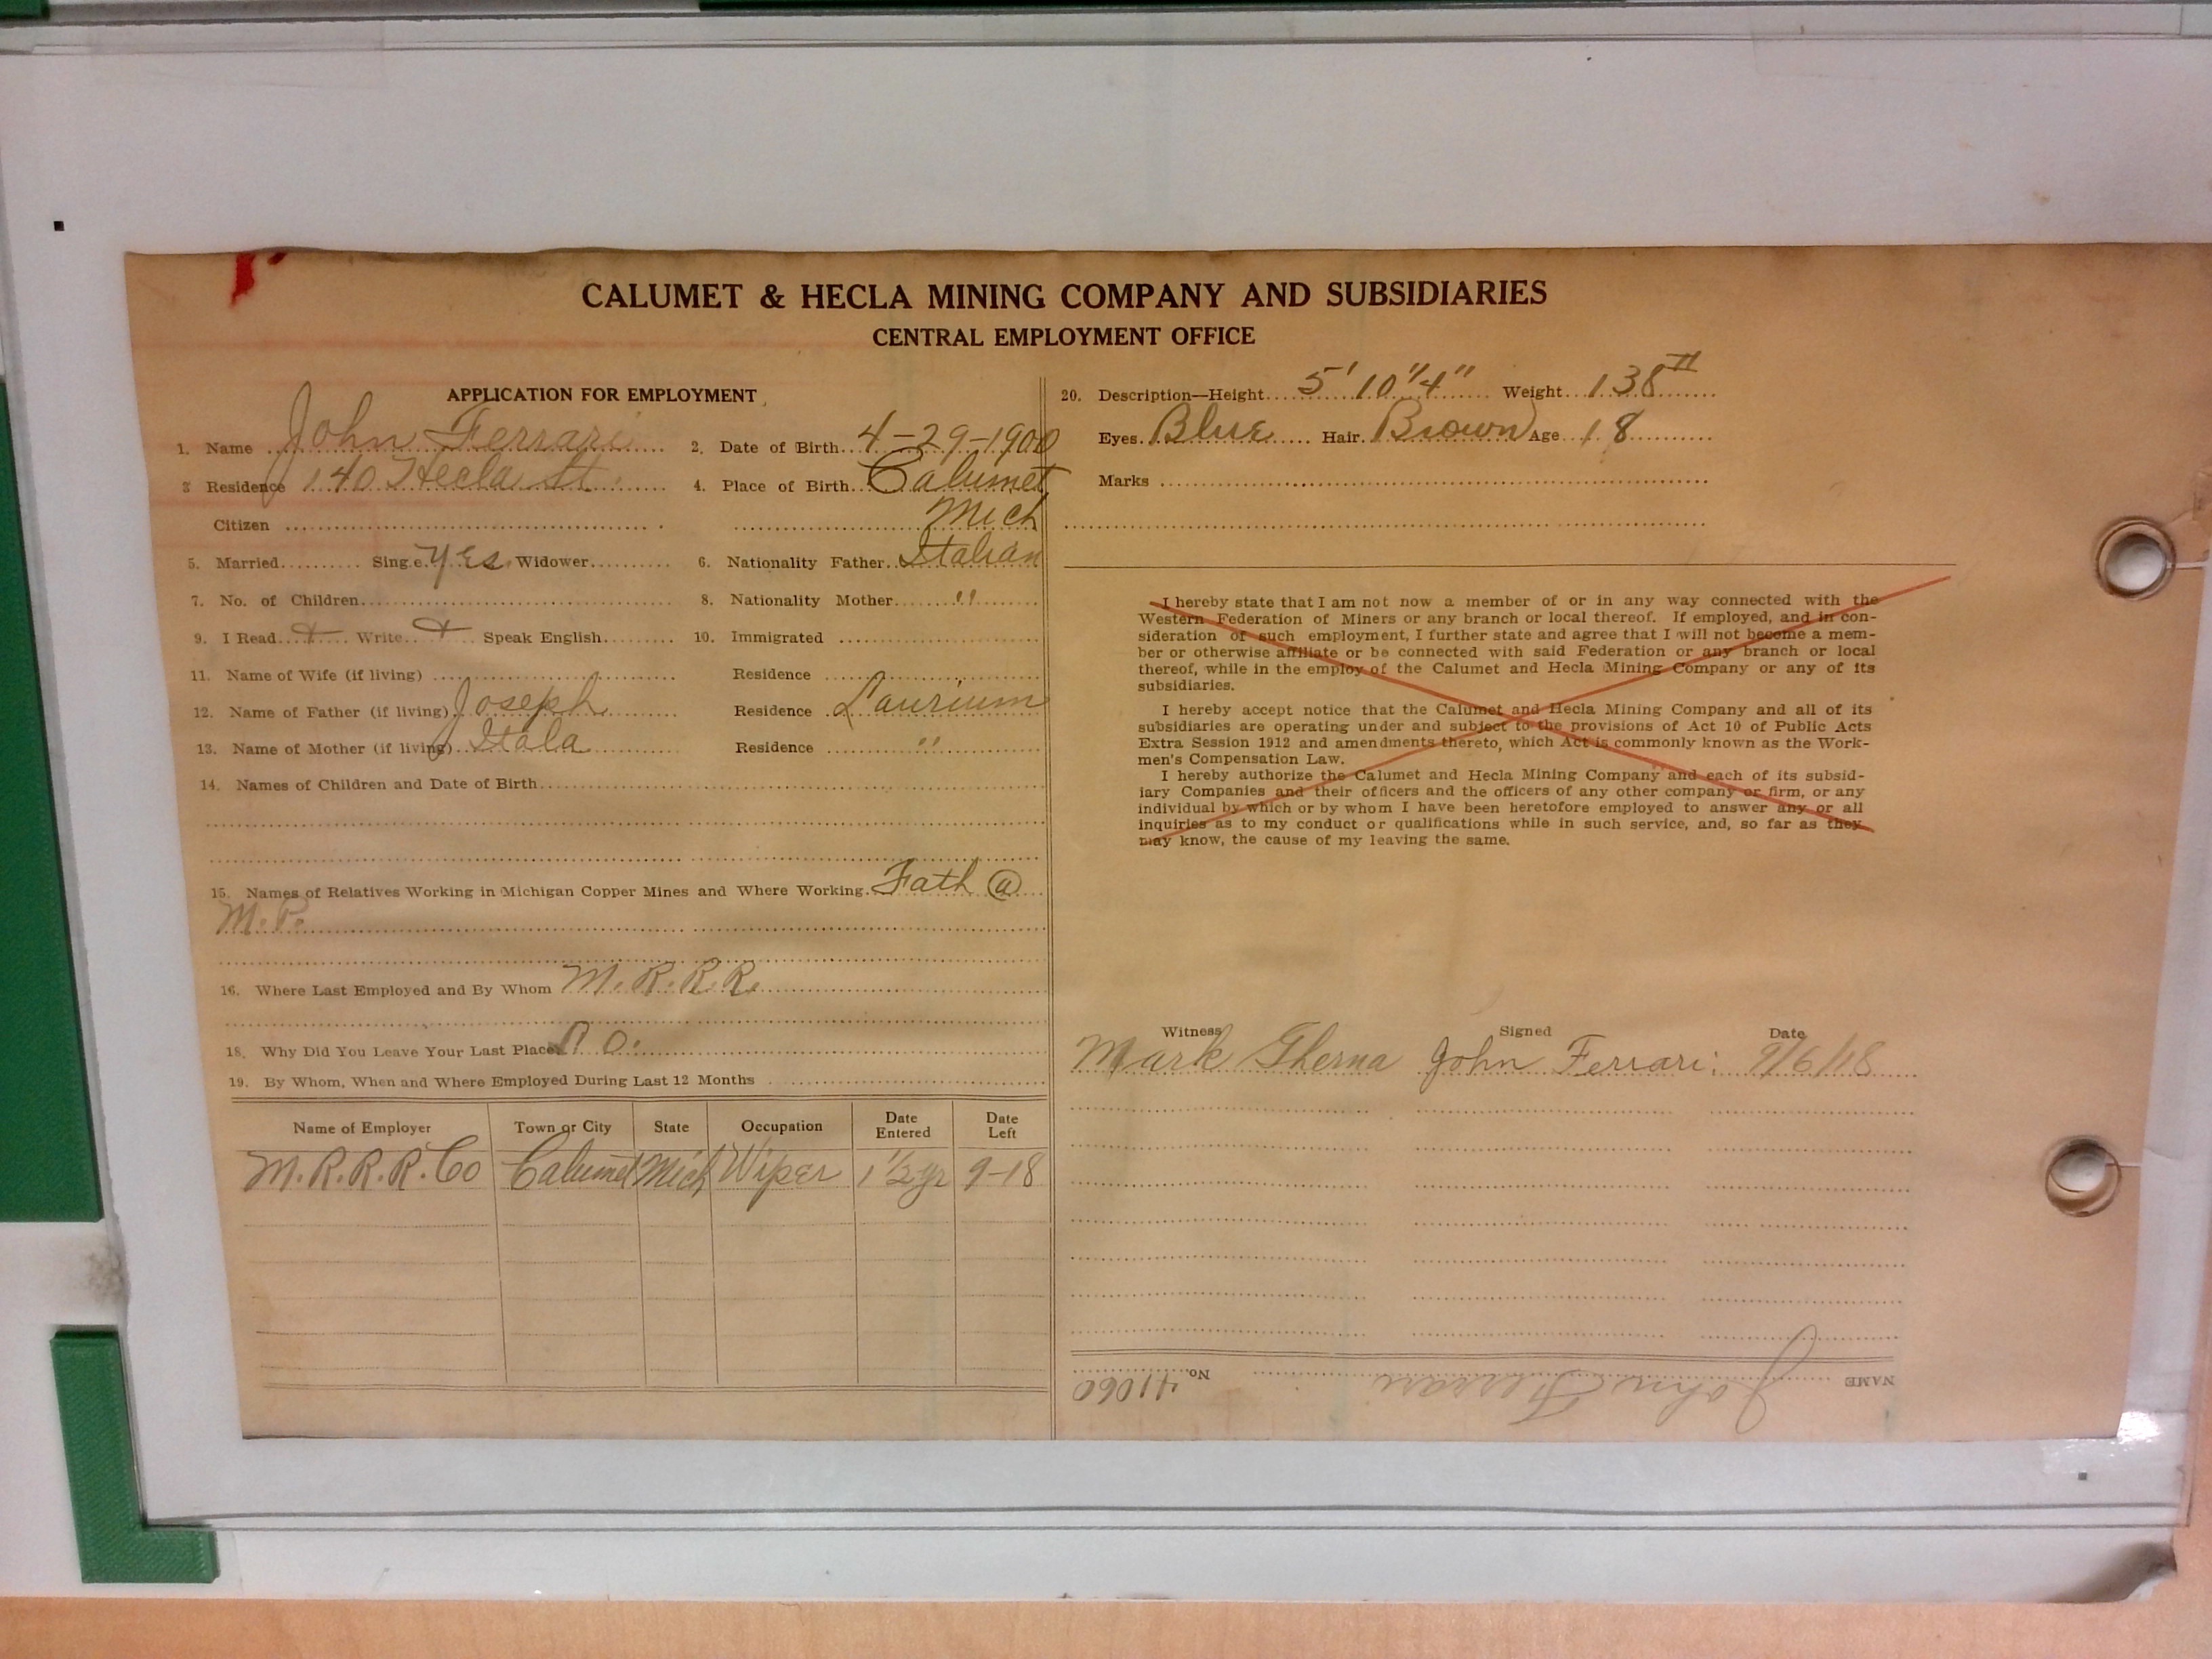 CALUMET & HECLA MINING COMPANY AND SUBSIDIARIES
CENTRAL EMPLOYMENT OFFICE
APPLICATION FOR EMPLOYMENT
1. Name John Ferrari 2. Date of Birth 4-29-1900
3 Residence 140 Hecla St. 4. Place of Birth Calumet
Citizen Mich
5. Married Single Yes Widower 6. Nationality Father Italian
7. No. of Children 8. Nationality Mother "
9. I Read + Write + Speak English 10. Immigrated
11. Name of Wife (if living) Residence
12. Name of Father (if living) Joseph Residence Laurium
13. Name of Mother (if living) Itala Residence "
14. Names of Children and Date of Birth
15. Names of Relatives Working in Michigan Copper Mines and Where Working. Fath @
M. P.
16. Where Last Employed and By Whom M. R. R. R.
18. Why Did You Leave Your Last Place O.
19. By Whom, When and Where Employed During Last 12 Months
Name of Employer Town or City State Occupation Date Entered Date Left
M. R. R. R. Co Calumet Mich Wiper 1 1/2 yr 9-18
20. Description—Height 5' 10 "4" Weight 138 #
Eyes Blue Hair Brown Age 18
Marks
I hereby state that I am not now a member of or in any way connected with the
Western Federation of Miners or any branch or local thereof. If employed, and in con-
sideration of such employment, I further state and agree that I will not become a mem-
ber or otherwise affiliate or be connected with said Federation or any branch or local
thereof, while in the employ of the Calumet and Hecla Mining Company or any of its
subsidiaries.
I hereby accept notice that the Calumet and Hecla Mining Company and all of its
subsidiaries are operating under and subject to the provisions of Act 10 of Public Acts
Extra Session 1912 and amendments thereto, which Act is commonly known as the Work-
men's Compensation Law.
I hereby authorize the Calumet and Hecla Mining Company and each of its subsid-
iary Companies and their officers and the officers of any other company or firm, or any
individual by which or by whom I have been heretofore employed to answer any or all
inquiries as to my conduct or qualifications while in such service, and, so far as they
may know, the cause of my leaving the same.
Witness Signed Date
Mark Gherna John Ferrari 9/6/18
NAME John Ferrari No. 41060